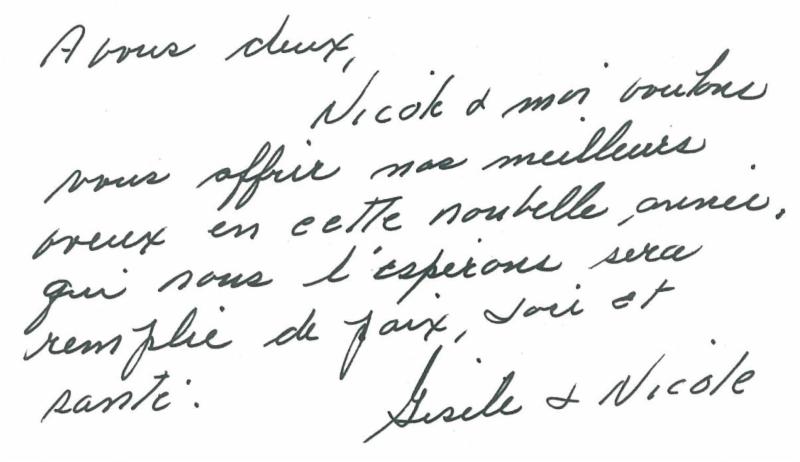 A vous deux,
Nicole & moi voulons
vous offrir nos meilleurs
voeux en cette nouvelle année,
qui nous l'espérons sera
remplie de paix, joie et
santé.
Gisèle & Nicole